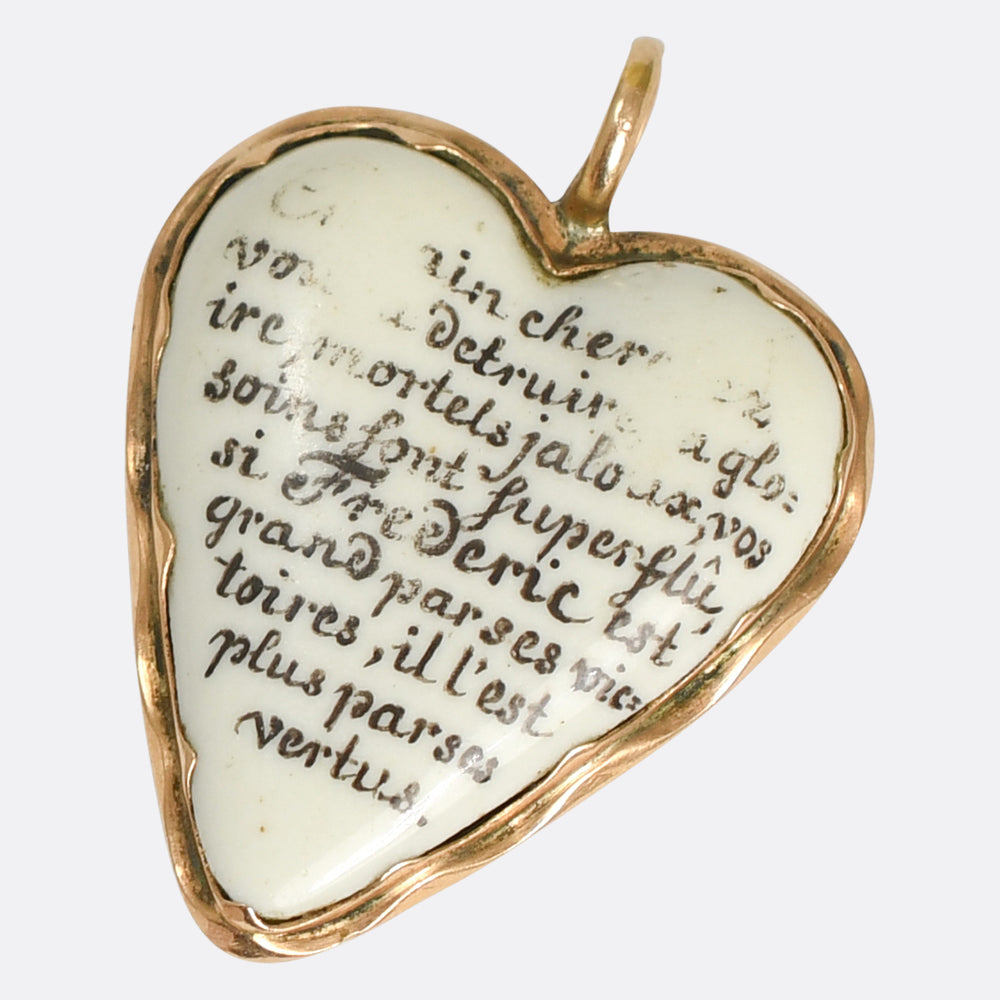 vin cher
detruire glo=
ire, mortels jaloux, vos
soins sont superflû,
si Frederic est
grand par ses vic=
toires, il l'est
plus par ses
vertus.